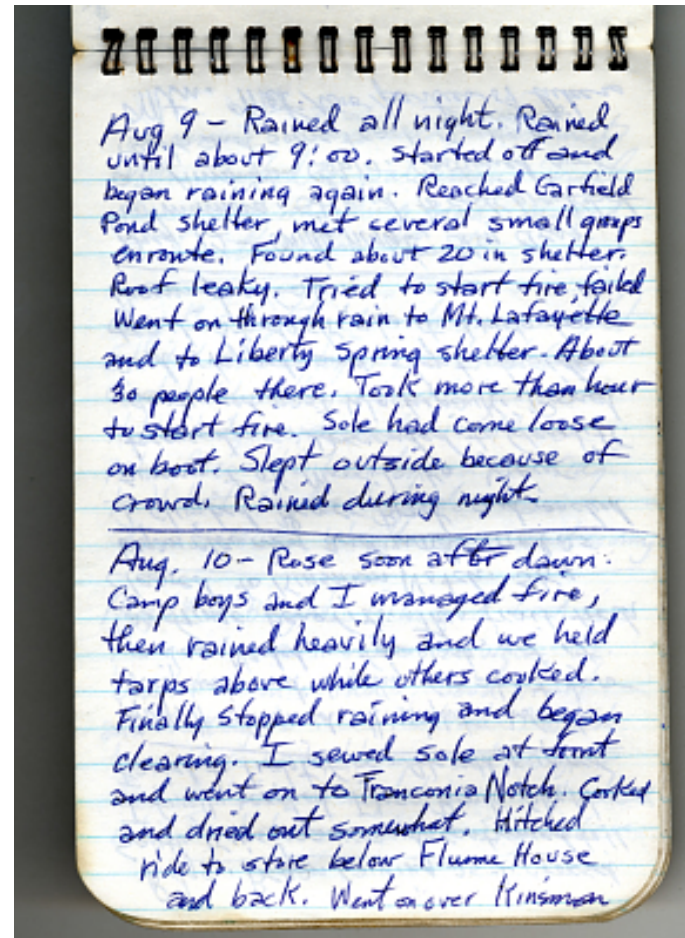 Aug 9 – Rained all night. Rained
until about 9:00. Started off and
began raining again. Reached Garfield
Pond shelter, met several small groups
enroute. Found about 20 in shelter.
Roof leaky. Tried to start fire, failed
Went on through rain to Mt. Lafayette
and to Liberty Spring shelter. About
30 people there. Took more than hour
to start fire. Sole had come loose
on boot. Slept outside because of
crowd. Rained during night.
Aug. 10 – Rose soon after dawn.
Camp boys and I managed fire,
then rained heavily and we held
tarps above while others cooked.
Finally stopped raining and began
clearing. I sewed sole at front
and went on to Franconia Notch. Cooked
and dried out somewhat. Hitched
ride to store below Flume House
and back. Went on over Kinsman